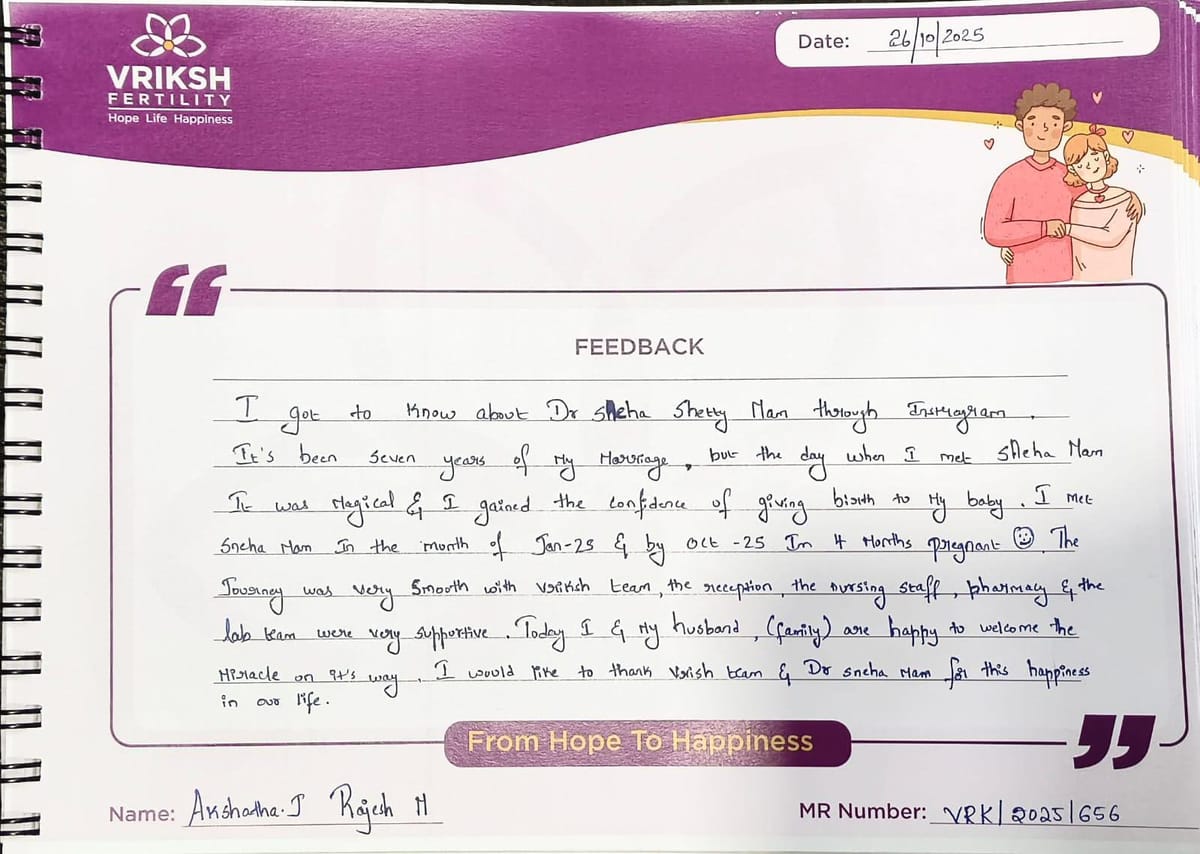 VRIKSH
FERTILITY
Hope Life Happiness
Date: 26/10/2025
FEEDBACK
I got to know about Dr Sneha Shetty Mam through Instragram.
It's been seven years of My Marriage, but the day when I met Sneha Mam
It was Magical & I gained the confidence of giving birth to My baby. I met
Sneha Mam In the month of Jan-25 & by Oct -25 Im 4 Months pregnant ☺. The
Journey was very Smooth with vriksh team, the reception, the nursing staff, pharmacy & the
lab team were very supportive. Today I & My husband, (family) are happy to welcome the
Miracle on it's way. I would like to thank Vrish team & Dr sneha Mam for this happiness
in our life.
From Hope To Happiness
Name: Akshadha.J Rajesh M
MR Number: VRK/2025/656